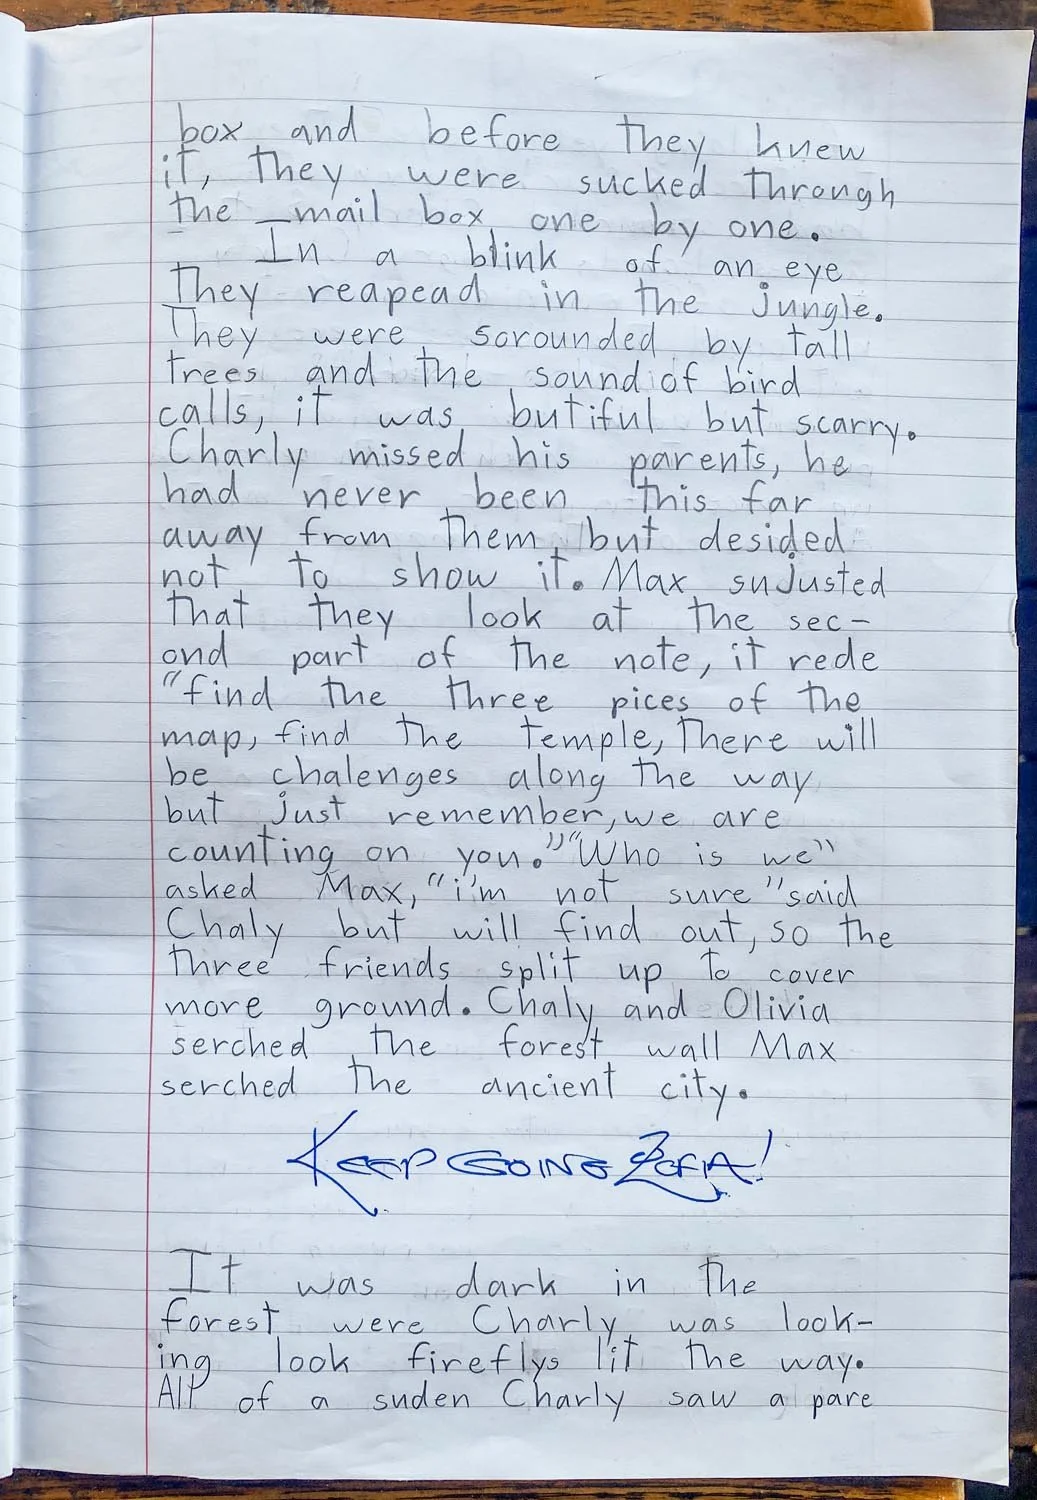 box and before they knew
it, they were sucked through
the mail box one by one.
In a blink of an eye
They reapead in the jungle.
They were scrounded by tall
trees and the sound of bird
calls, it was butiful but scarry.
Charly missed his parents, he
had never been this far
away from them, but desided
not to show it. Max sujusted
that they look at the sec-
ond part of the note, it rede
"find the three pices of the
map, find the temple, There will
be chalenges along the way
but just remember, we are
counting on you." "Who is we"
asked Max, "i'm not sure" said
Chaly but will find out, so the
three friends split up to cover
more ground. Chaly and Olivia
serched the forest wall Max
serched the ancient city.
KEEP GOING ZOFIA!
It was dark in the
forest were Charly was look-
ing look fireflys lit the way.
All of a suden Charly saw a pare